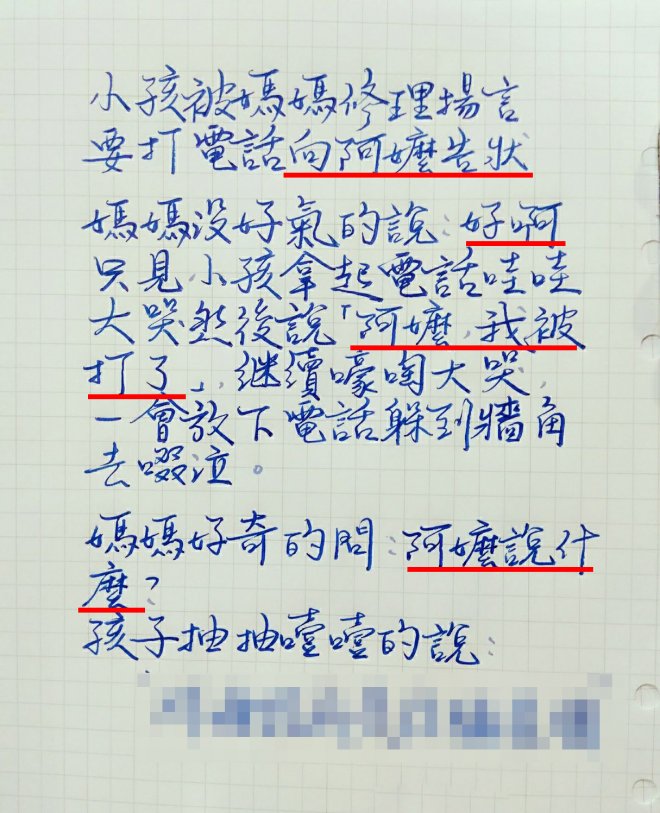 小孩被媽媽修理揚言
要打電話向阿嬤告狀
媽媽沒好氣的說:好啊
只見小孩拿起電話哇哇
大哭然後說「阿嬤,我被
打了」,继續嚎啕大哭,
一會放下電話躲到牆角
去啜泣。
媽媽好奇的問:阿嬤說什
麼?
孩子抽抽噎噎的說: